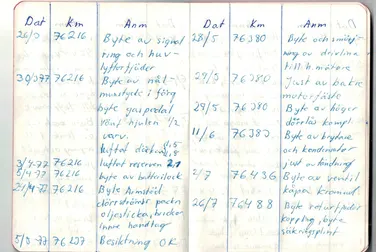 Dat Km Anm
26/3 76216 Byte av signal
ring och huv-
lyftarfjäder
30/3 77 76216 Byte av
musstycke i förg
byte gaspedal
hjulen 1/2
varv.
luftat däcken 1,5
1,8
3/4-77 76216 luftat reserven 2,1
5/4-77 76216 byte av batterilock
24/4-77 76216 Byte Armstöd
dörrhandtr packn
oljesticka, brickor
inre handtag
5/5-77 76207 Besiktning OK
Dat Km Anm
28/5 76380 Byte och smörj-
ning av
till h mätare
29/5 76380 Just av bakre
motorfäste
29/5 76380 Byte av höger
dörrlås kompl
11/6 76380 Byte av brytare
och kondensator
just av tändning
2/7 76436 Byte av ventil
kåpa kromad
26/7 76488 Byte returfjäder
koppling, byte
säkringsplint